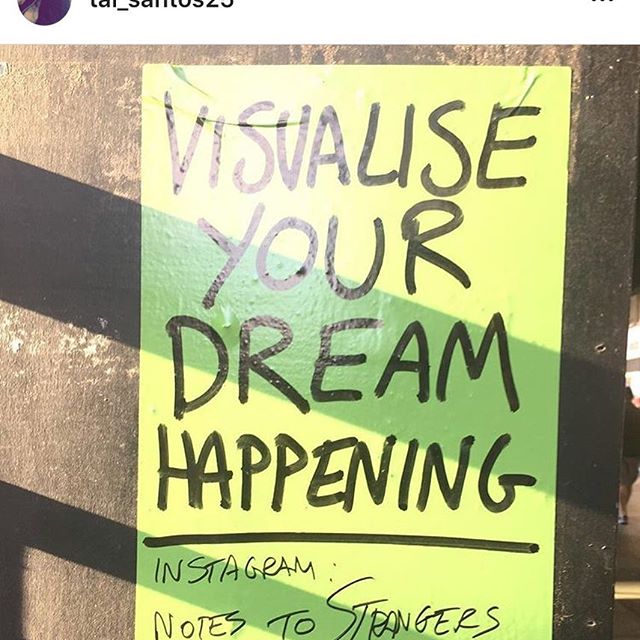 VISUALISE
YOUR
DREAM
HAPPENING
INSTAGRAM:
NOTES TO STRANGERS